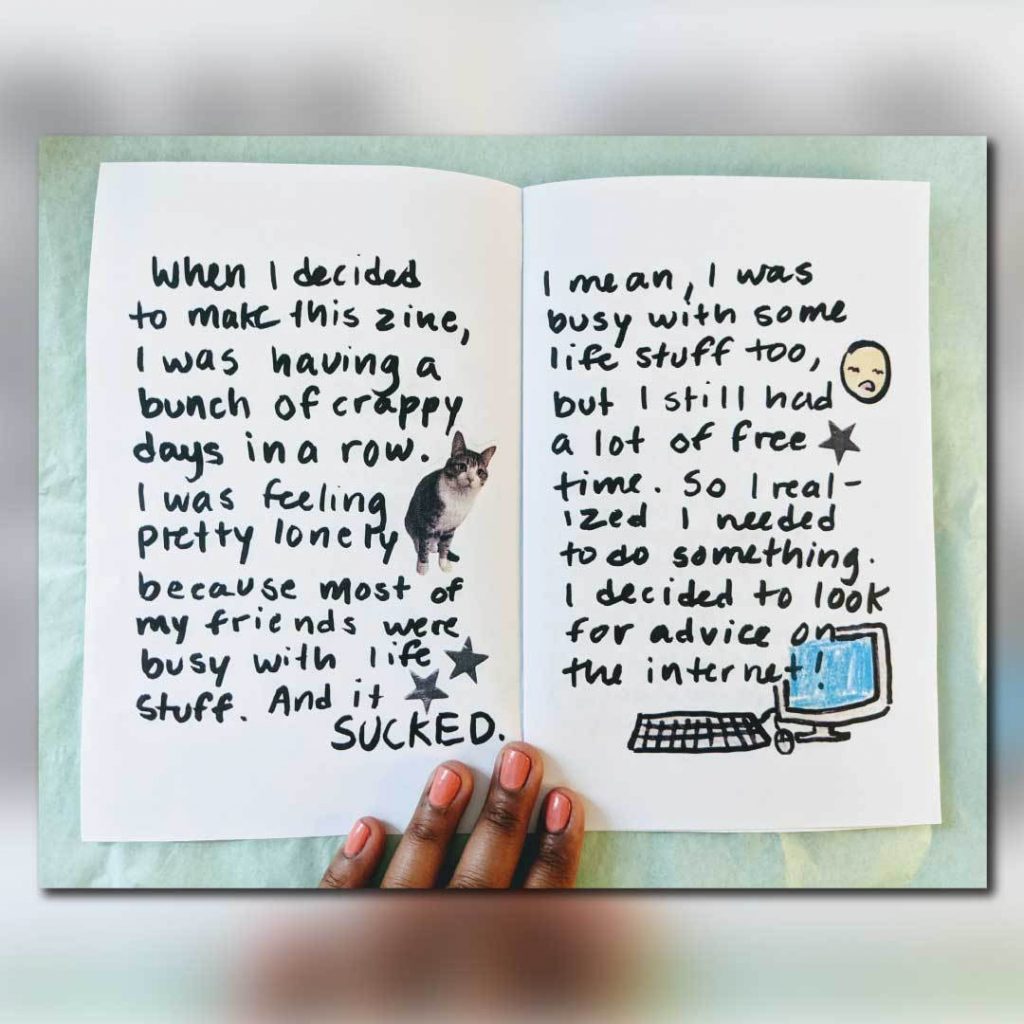 When I decided
to make this zine,
I was having a
bunch of crappy
days in a row.
I was feeling
pretty lonely
because most of
my friends were
busy with life
stuff. And it
SUCKED.
I mean, I was
busy with some
life stuff too,
but I still had
a lot of free
time. So I real-
ized I needed
to do something.
I decided to look
for advice on
the internet!